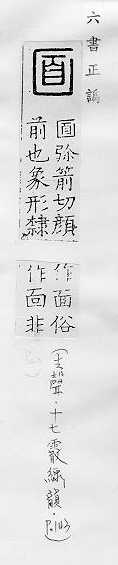 六書正譌
弥箭切顔
前也象形隸
作面俗
作靣非
(去聲·十七霰線韻·P.103)